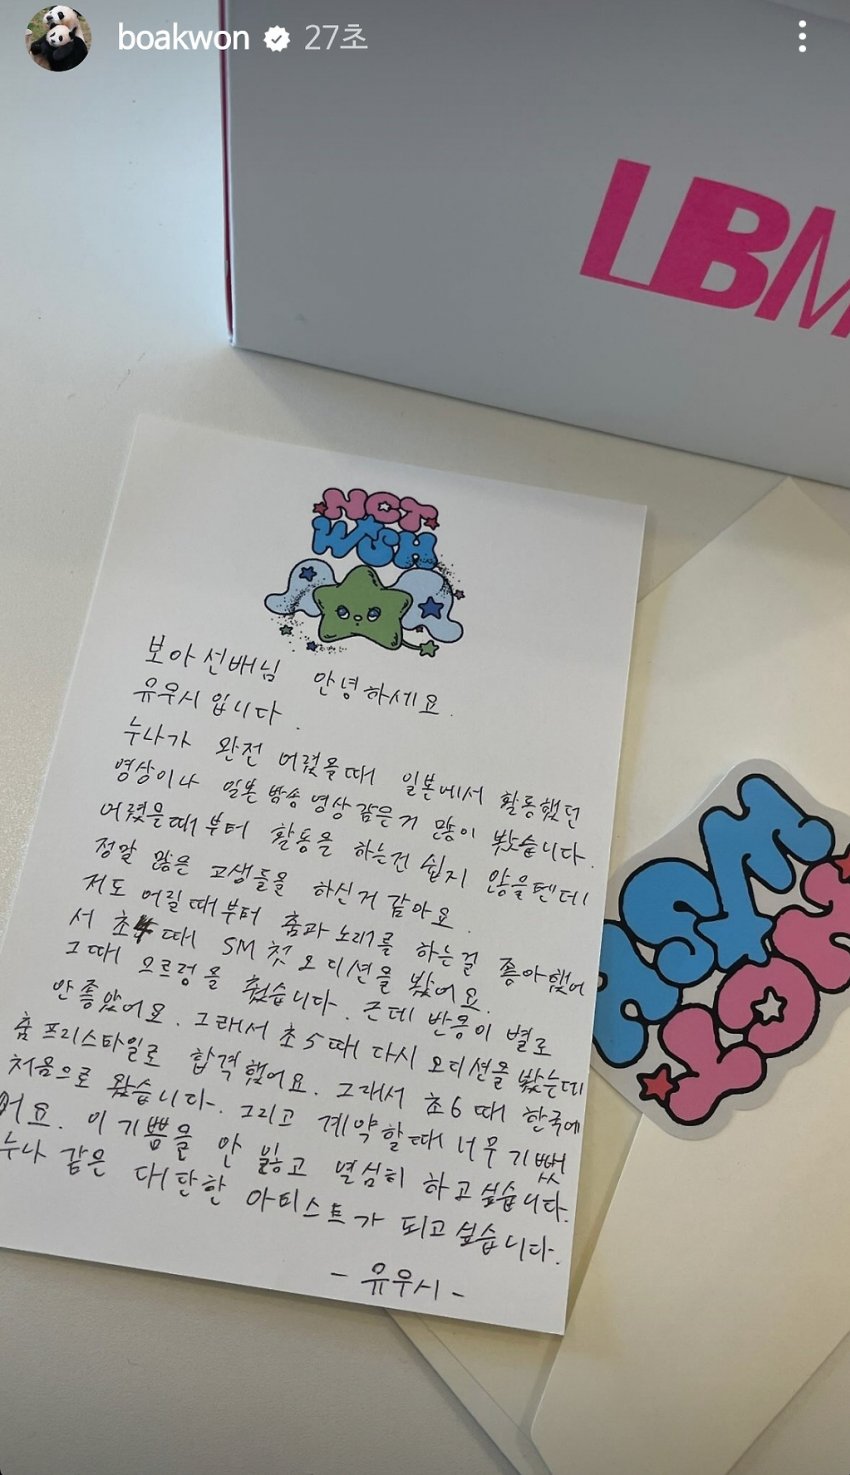 boakwon 27초
LBM
NCT
WISH
보아선배님 안녕하세요.
유우시입니다.
누나가 완전 어렸을때 일본에서 활동했던
영상이나 일본 방송 영상 같은거 많이 봤습니다.
어렸을때부터 활동을 하는건 쉽지 않을텐데
정말 많은 고생들을 하신거 같아요.
저도 어릴때부터 춤과 노래를 하는걸 좋아했어
서 초4때 SM 첫 오디션을 봤어요.
그때 으르렁을 췄습니다. 근데 반응이 별로
안좋았어요. 그래서 초5때 다시 오디션을 봤는데
춤 프리스타일로 합격했어요. 그래서 초6때 한국에
처음으로 왔습니다. 그리고 계약할때 너무 기뻤
어요. 이 기쁨을 안 잃고 열심히 하고싶습니다.
누나 같은 대단한 아티스트가 되고싶습니다.
- 유우시 -
NCT
WISH